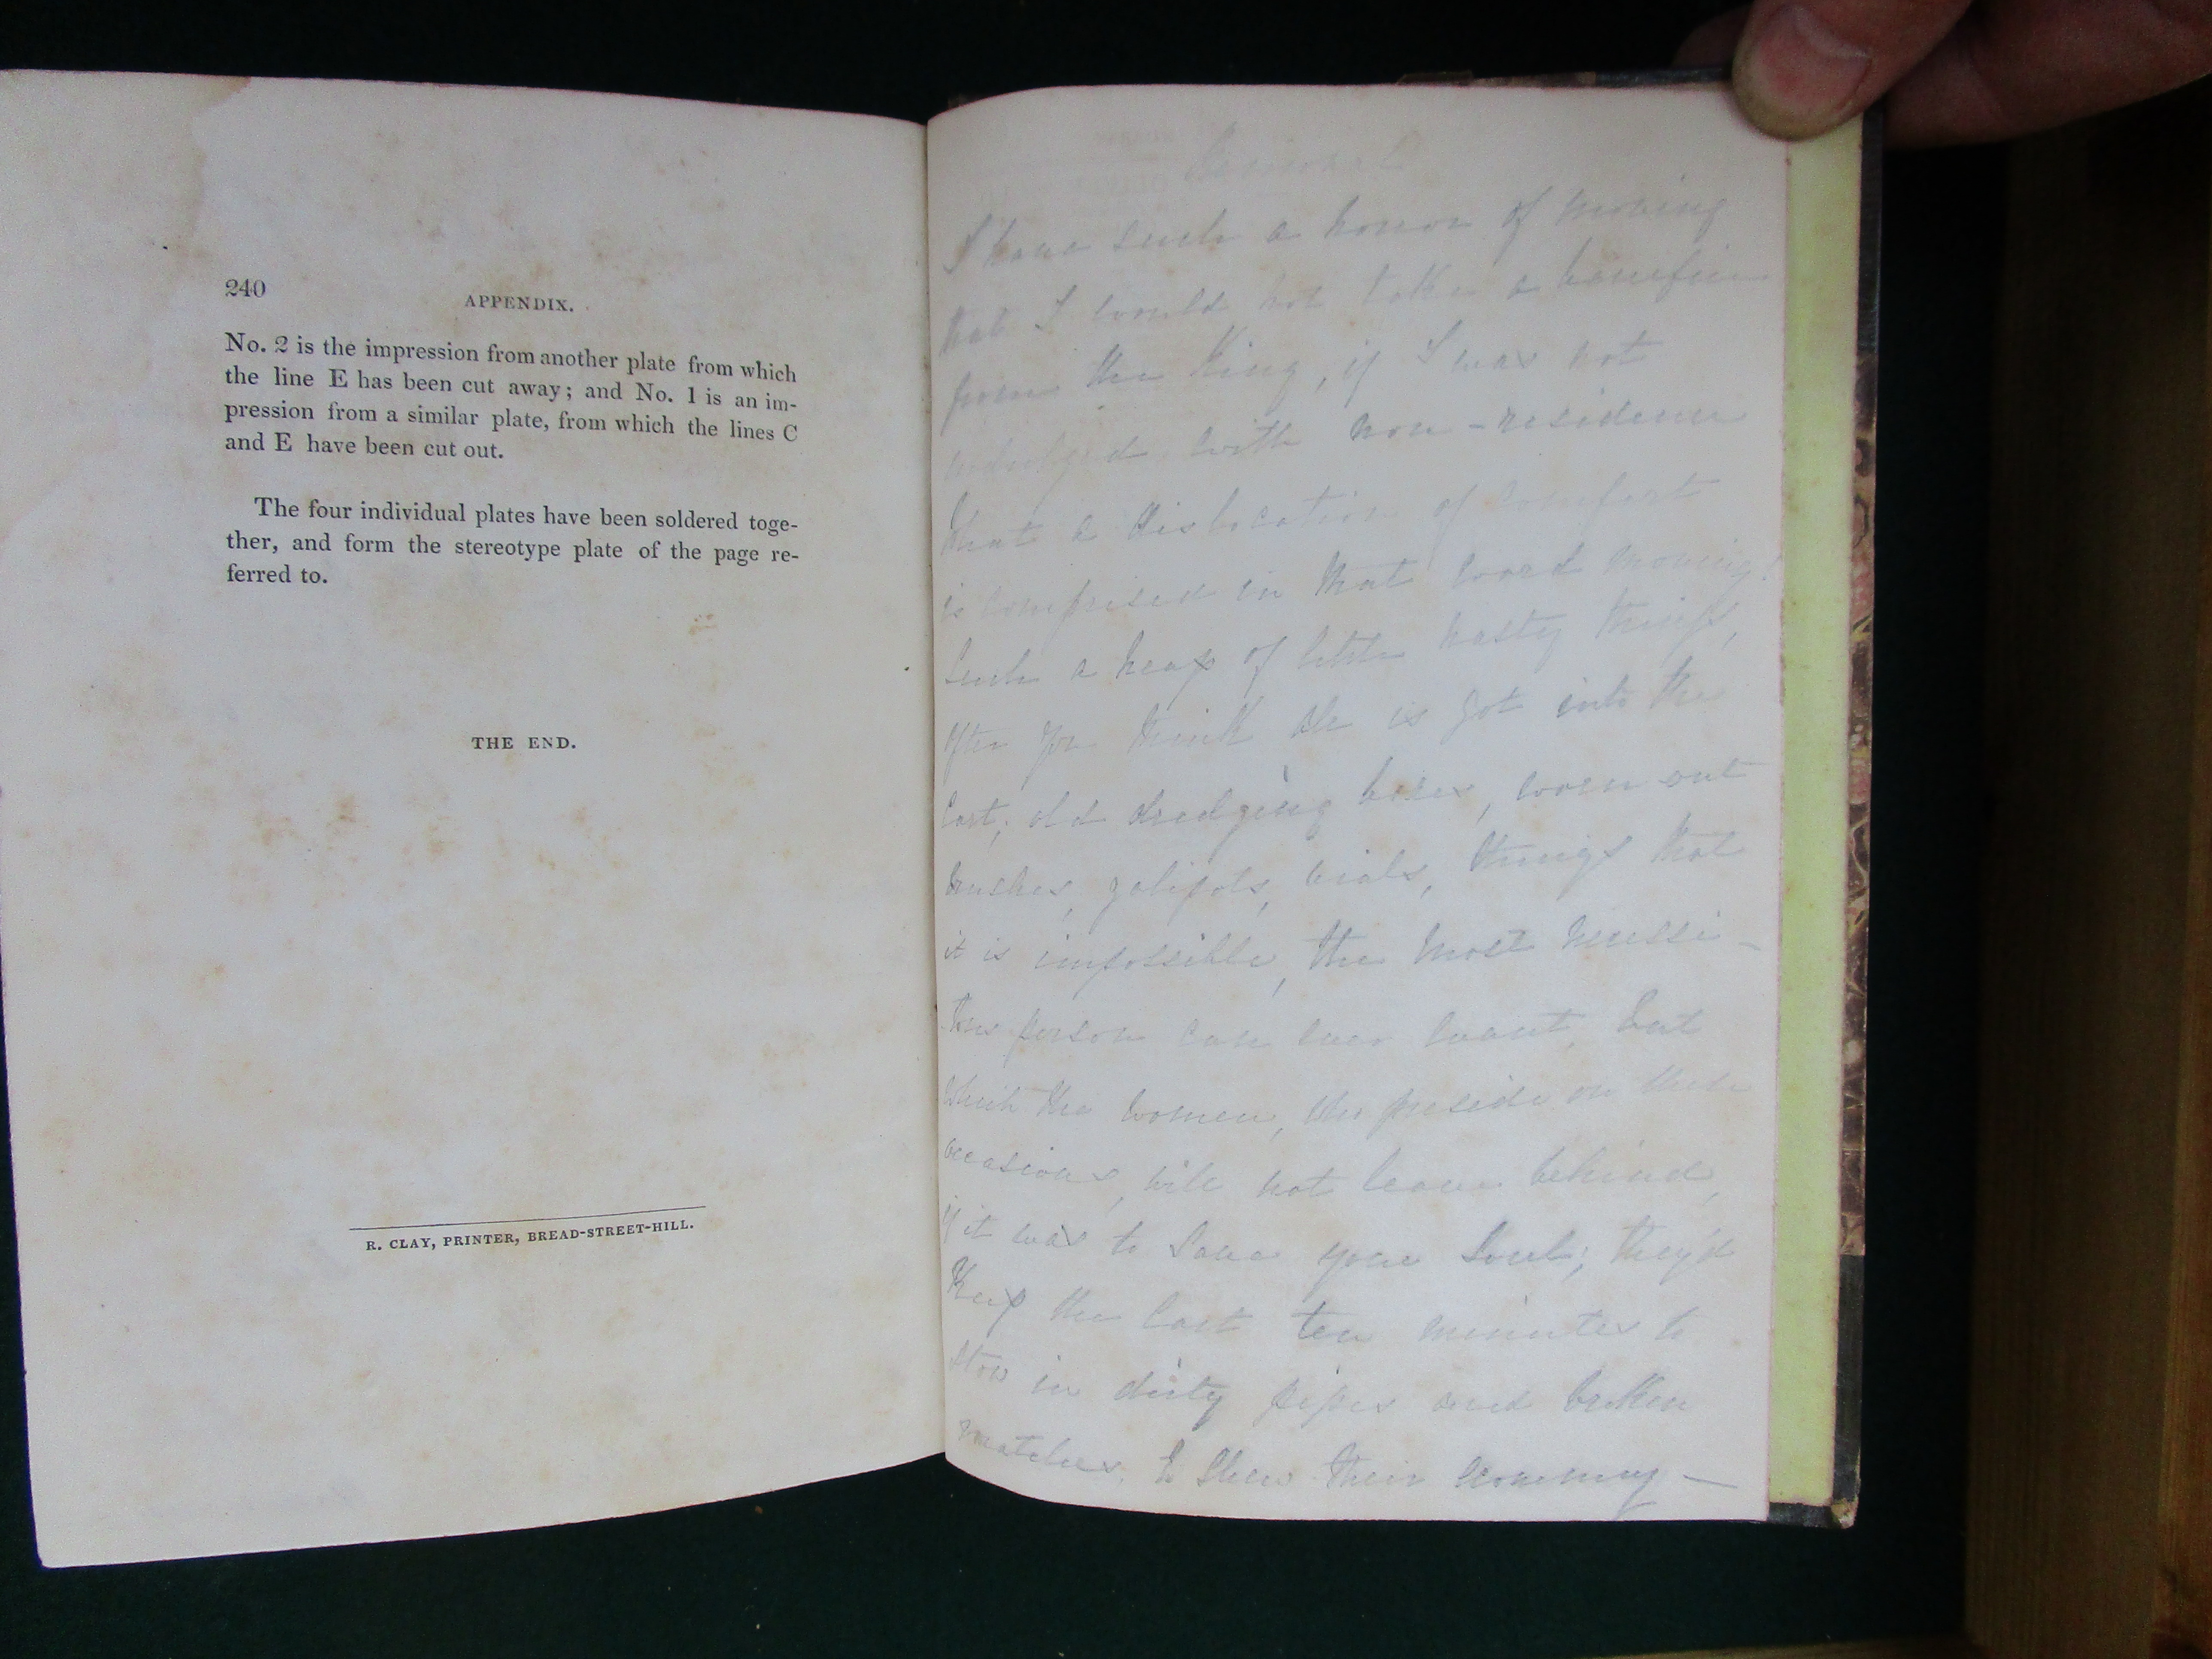 240
APPENDIX.
No. 2 is the impression from another plate from which
the line E has been cut away; and No. 1 is an im-
pression from a similar plate, from which the lines C
and E have been cut out.
The four individual plates have been soldered toge-
ther, and form the stereotype plate of the page re-
ferred to.
THE END.
R. CLAY, PRINTER, BREAD-STREET-HILL.
I have such a horror of moving
that I would not take a benefice
from the King, if I was not
indulged with non-residence
What a dislocation of comfort
is comprised in that word moving!
Such a heap of little nasty things,
after you think all is got into the
Cart; old dredging boxes, worn out
brushes, galipots, vials, things that
it is impossible, the most necessi-
tous person can ever want, but
which the women, who preside on these
occasions, will not leave behind,
if it was to save your Soul; they'd
Keep the Cart ten minutes to
Stow in dirty pipes and broken
matches, to shew their economy —